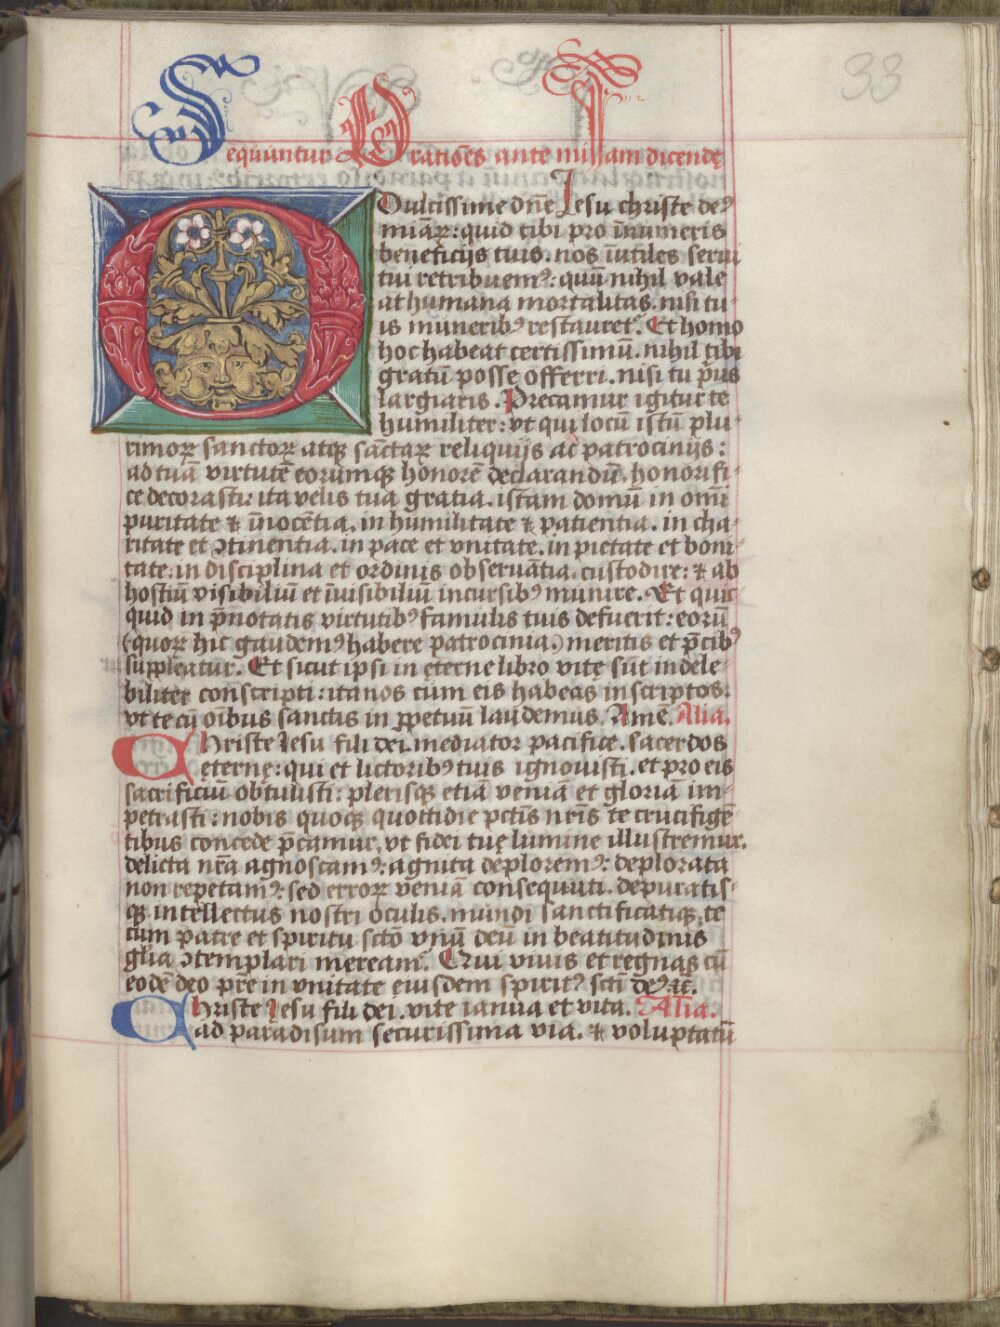 33
Sequuntur Oratiōes ante missam dicendę
O Dulcissime dn̄e Iesu christe deꝰ
miāꝝ: quid tibi pro inumeris
beneficijs tuis. nos īutiles serui
tui retribuemꝰ: quū nihil vale
at humana mortalitas. nisi tu-
is muneribꝰ restauret᷑. Et homo
hoc habeat certissimū. nihil tibi
gratū posse offerri. nisi tu pꝰus
largiaris. Precamur igitur te
humiliter: vt qui locū istū plu-
rimoꝝ sanctoꝝ atqꝫ sāctaꝝ reliquijs ac patrocinijs:
ad tuā virtutē eorumqꝫ honorē declarandū. honorifi-
ce decorasti: ita velis tua gratia. istam domū in omī
puritate & īnocētia. in humilitate & patientia. in cha-
ritate et ↄtinentia. in pace et vnitate. in pietate et boni-
tate: in disciplina et ordinis obseruātia. custodire: & ab
hostiū visibiliū et īuisibiliū incursibꝰ munire. Et quic-
quid in p̄notatis virtutibꝰ famulis tuis defuerit: eorū
(quoꝝ hic gaudemꝰ habere patrocinia) meritis et p̄cibꝰ
suppleatur. Et sicut ipsi in ęterne libro vitę sūt indele-
biliter conscripti: ita nos cum eis habeas inscriptos:
vt te cū oībus sanctis in ꝑpetuū laudemus. Amē. Alia.
Christe Iesu fili dei. mediator pacifice. sacerdos
ęternę: qui et lictoribꝰ tuis ignouisti. et pro eis
sacrificiū obtulisti: plerisqꝫ etiā veniā et gloriā im-
petrasti: nobis quoqꝫ quottidie pctīs nrīs te crucifigē-
tibus concede p̄camur. vt fidei tuę lumine illustremur.
delicta nrā agnoscamꝰ: agnita deploremꝰ: deplorata
non repetamꝰ: sed erroꝝ veniā consequuti. depuratis-
qꝫ intellectus nostri oculis. mundi sanctificatiqꝫ. te
cum patre et spiritu sctō vnū deū in beatitudinis
glīa ↄtemplari meream᷑. Qui viuis et regnas cū
eodē deo prē in vnitate eiusdem spiritꝰ sctī deꝰ ꝛc̄.
Christe Iesu fili dei. vite ianua et vita. Alia.
ad paradisum securissima via. & voluptatū